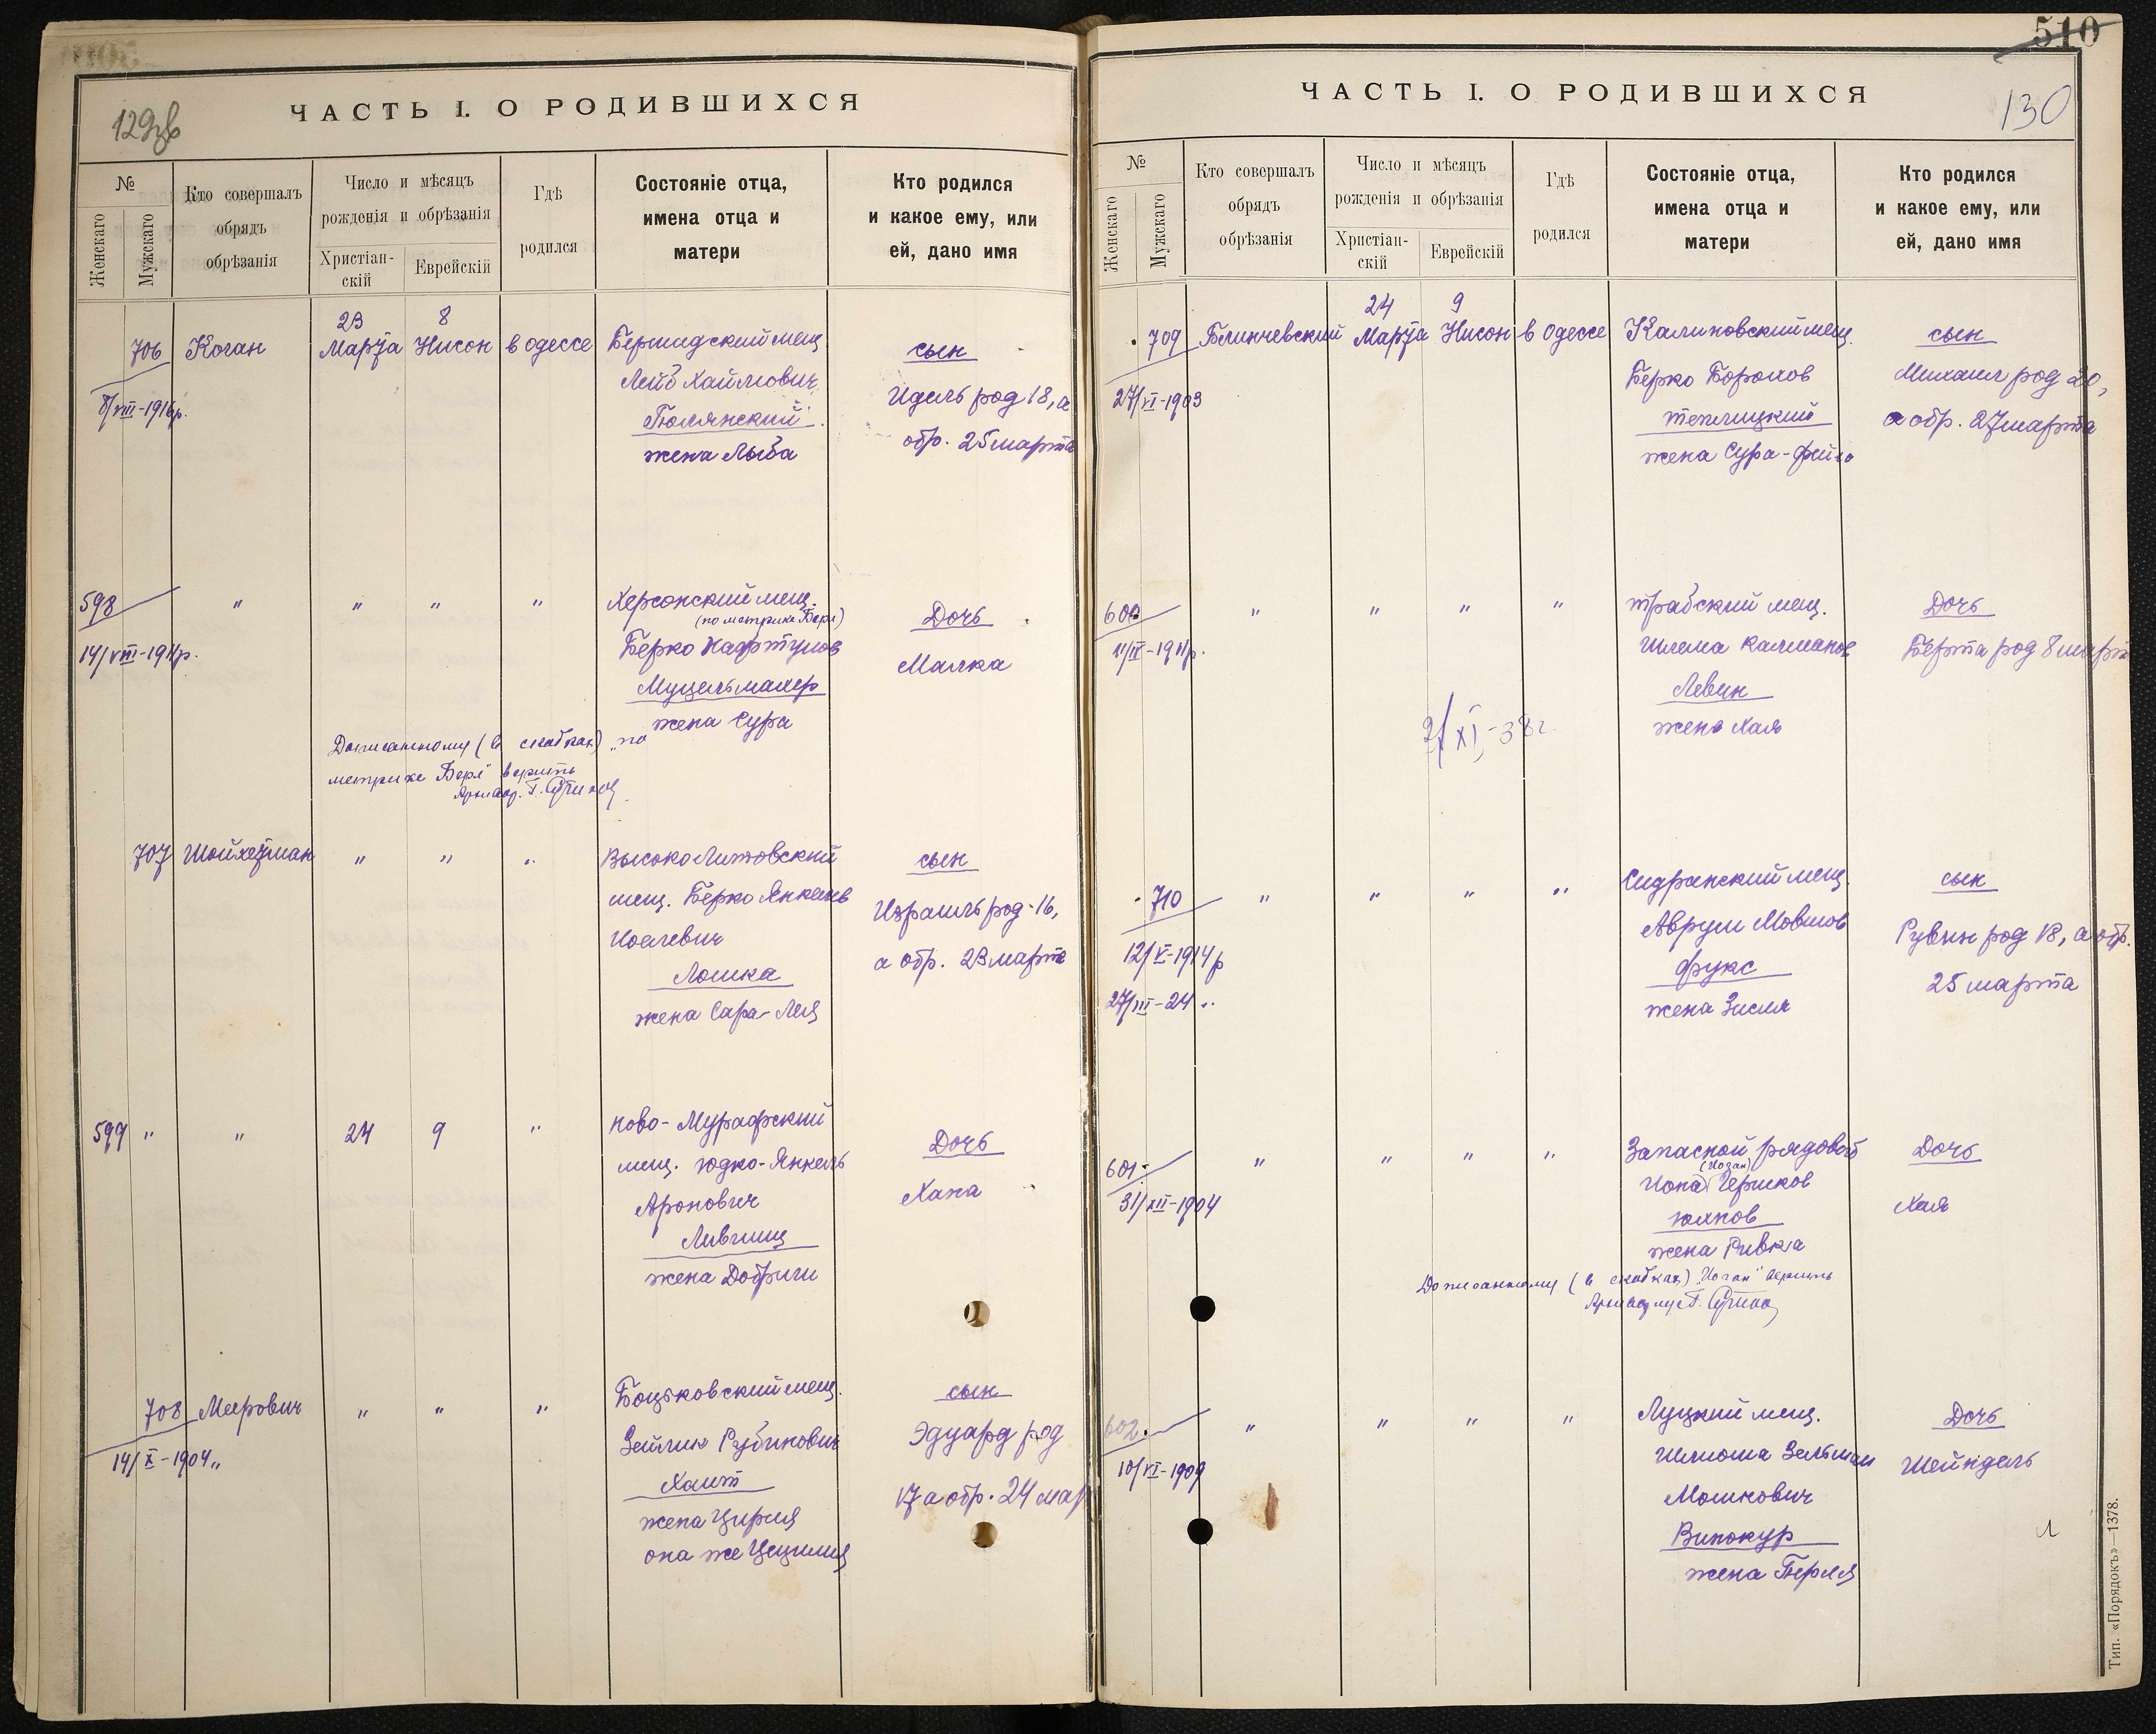 129об
ЧАСТЬ I. О РОДИВШИХСЯ
№
Женскаго
Мужскаго
Кто совершалъ
обрядъ
обрѣзанія
Число и мѣсяцъ
рожденія и обрѣзанія
Христіан-
скій
Еврейскій
Гдѣ
родился
Состояніе отца,
имена отца и
матери
Кто родился
и какое ему, или
ей, дано имя
23 8
706 Коган Марта Нисон в Одессе Бершадский мещ.
сын
Лейб Хаимович
Идель род 18, а
8/VIII-1916р.
Полянский
обр. 25 марта
жена Лыба
598 " " " " Херсонский мещ.
(по метрике Берл)
Дочь
14/VIII-1911р.
Берко Нафтулов
Малка
Муцельмахер
жена Сура
Дописанному (в скобках) "по
метрике Берл" верить
707 Шойхетман " " " Высоко Литовский
сын
мещ. Берко Янкель
Израиль род. 16,
Иоелевич
а обр. 23 марта
Лошка
жена Сара-Лея
599 " " 24 9 " Ново-Мурафский
Дочь
мещ. Юдко-Янкель
Хана
Аронович
Лившиц
жена Добриш
708 Меерович " " " Боцьковский мещ.
сын
14/X-1904"
Зейлик Рубинович
Эдуард род
Хаит
17 а обр. 24 мар
жена Цирля
она же Цецилия
510
130
ЧАСТЬ I. О РОДИВШИХСЯ
№
Женскаго
Мужскаго
Кто совершалъ
обрядъ
обрѣзанія
Число и мѣсяцъ
рожденія и обрѣзанія
Христіан-
скій
Еврейскій
Гдѣ
родился
Состояніе отца,
имена отца и
матери
Кто родился
и какое ему, или
ей, дано имя
24 9
709 Блинчевский Марта Нисон в Одессе Калиновский мещ.
сын
27/VI-1903
Берко Борохов
Михаил род 20,
Теплицкий
а обр. 27 марта
жена Сура-Фейга
600 " " " " Трабский мещ.
Дочь
11/IV-1911р.
Шлема Калманов
Берта род 8 март
Левин
жена Хая
2/XI-38г.
710 " " " " Сидранский мещ.
сын
12/V-1914р
Аврум Мовшов
Рувин род 18, а обр.
Фукс
25 марта
27/III-24 "
жена Зисля
601 " " " " Запасной рядовой
(Иоган)
Дочь
31/XII-1904
Иона Гершков
Хая
Юхнов
жена Ривка
Дописанному (в скобках) "Иоган" верить
602 " " " " Луцкий мещ.
Дочь
10/VI-1909
Шлиома Зельман
Шейндель
Мошкович
Винокур
жена Перля
Тип. «Порядокъ»—1378.